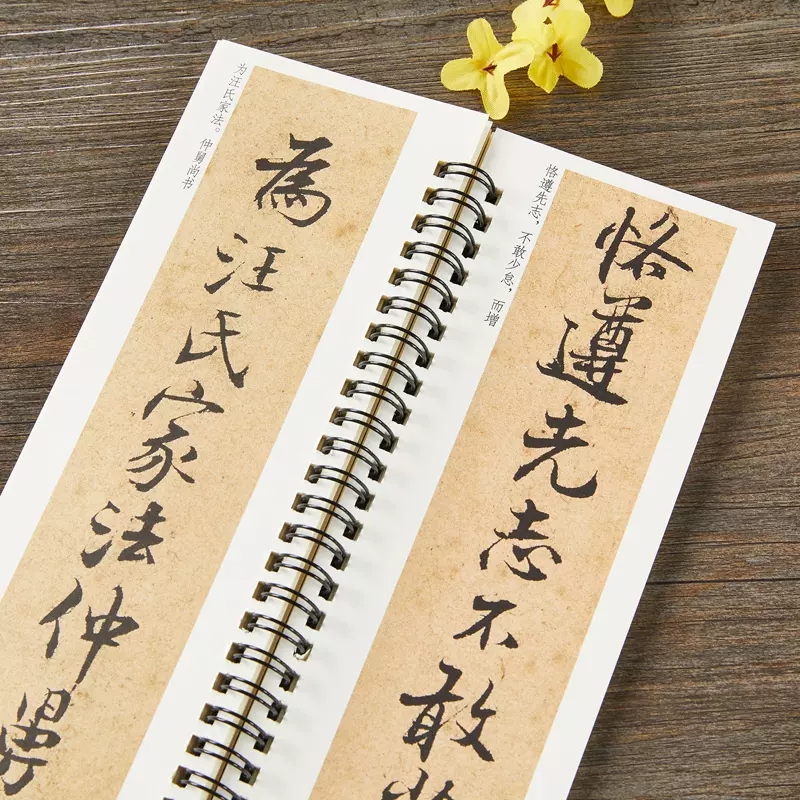 为汪氏家法。仲舅尚书
為汪氏家法仲舅
恪遵先志，不敢少怠，而增
恪遵先志不敢